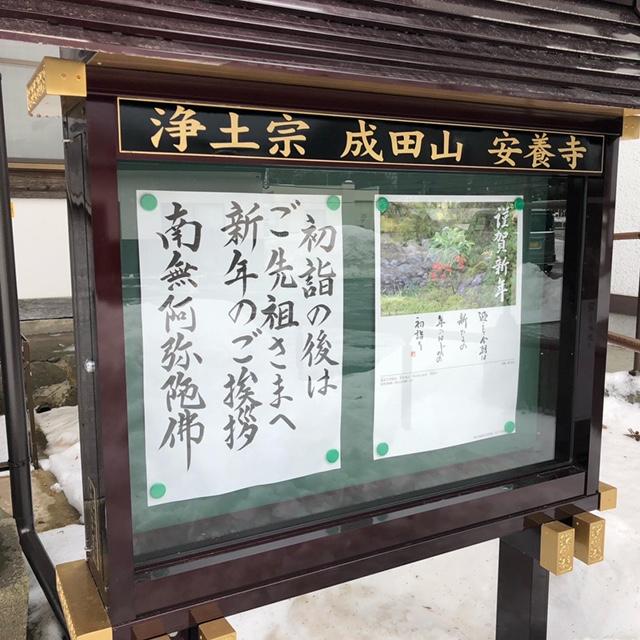 浄土宗 成田山 安養寺
初詣の後は
ご先祖さまへ
新年のご挨拶
南無阿弥陀佛
謹賀新年
初詣り